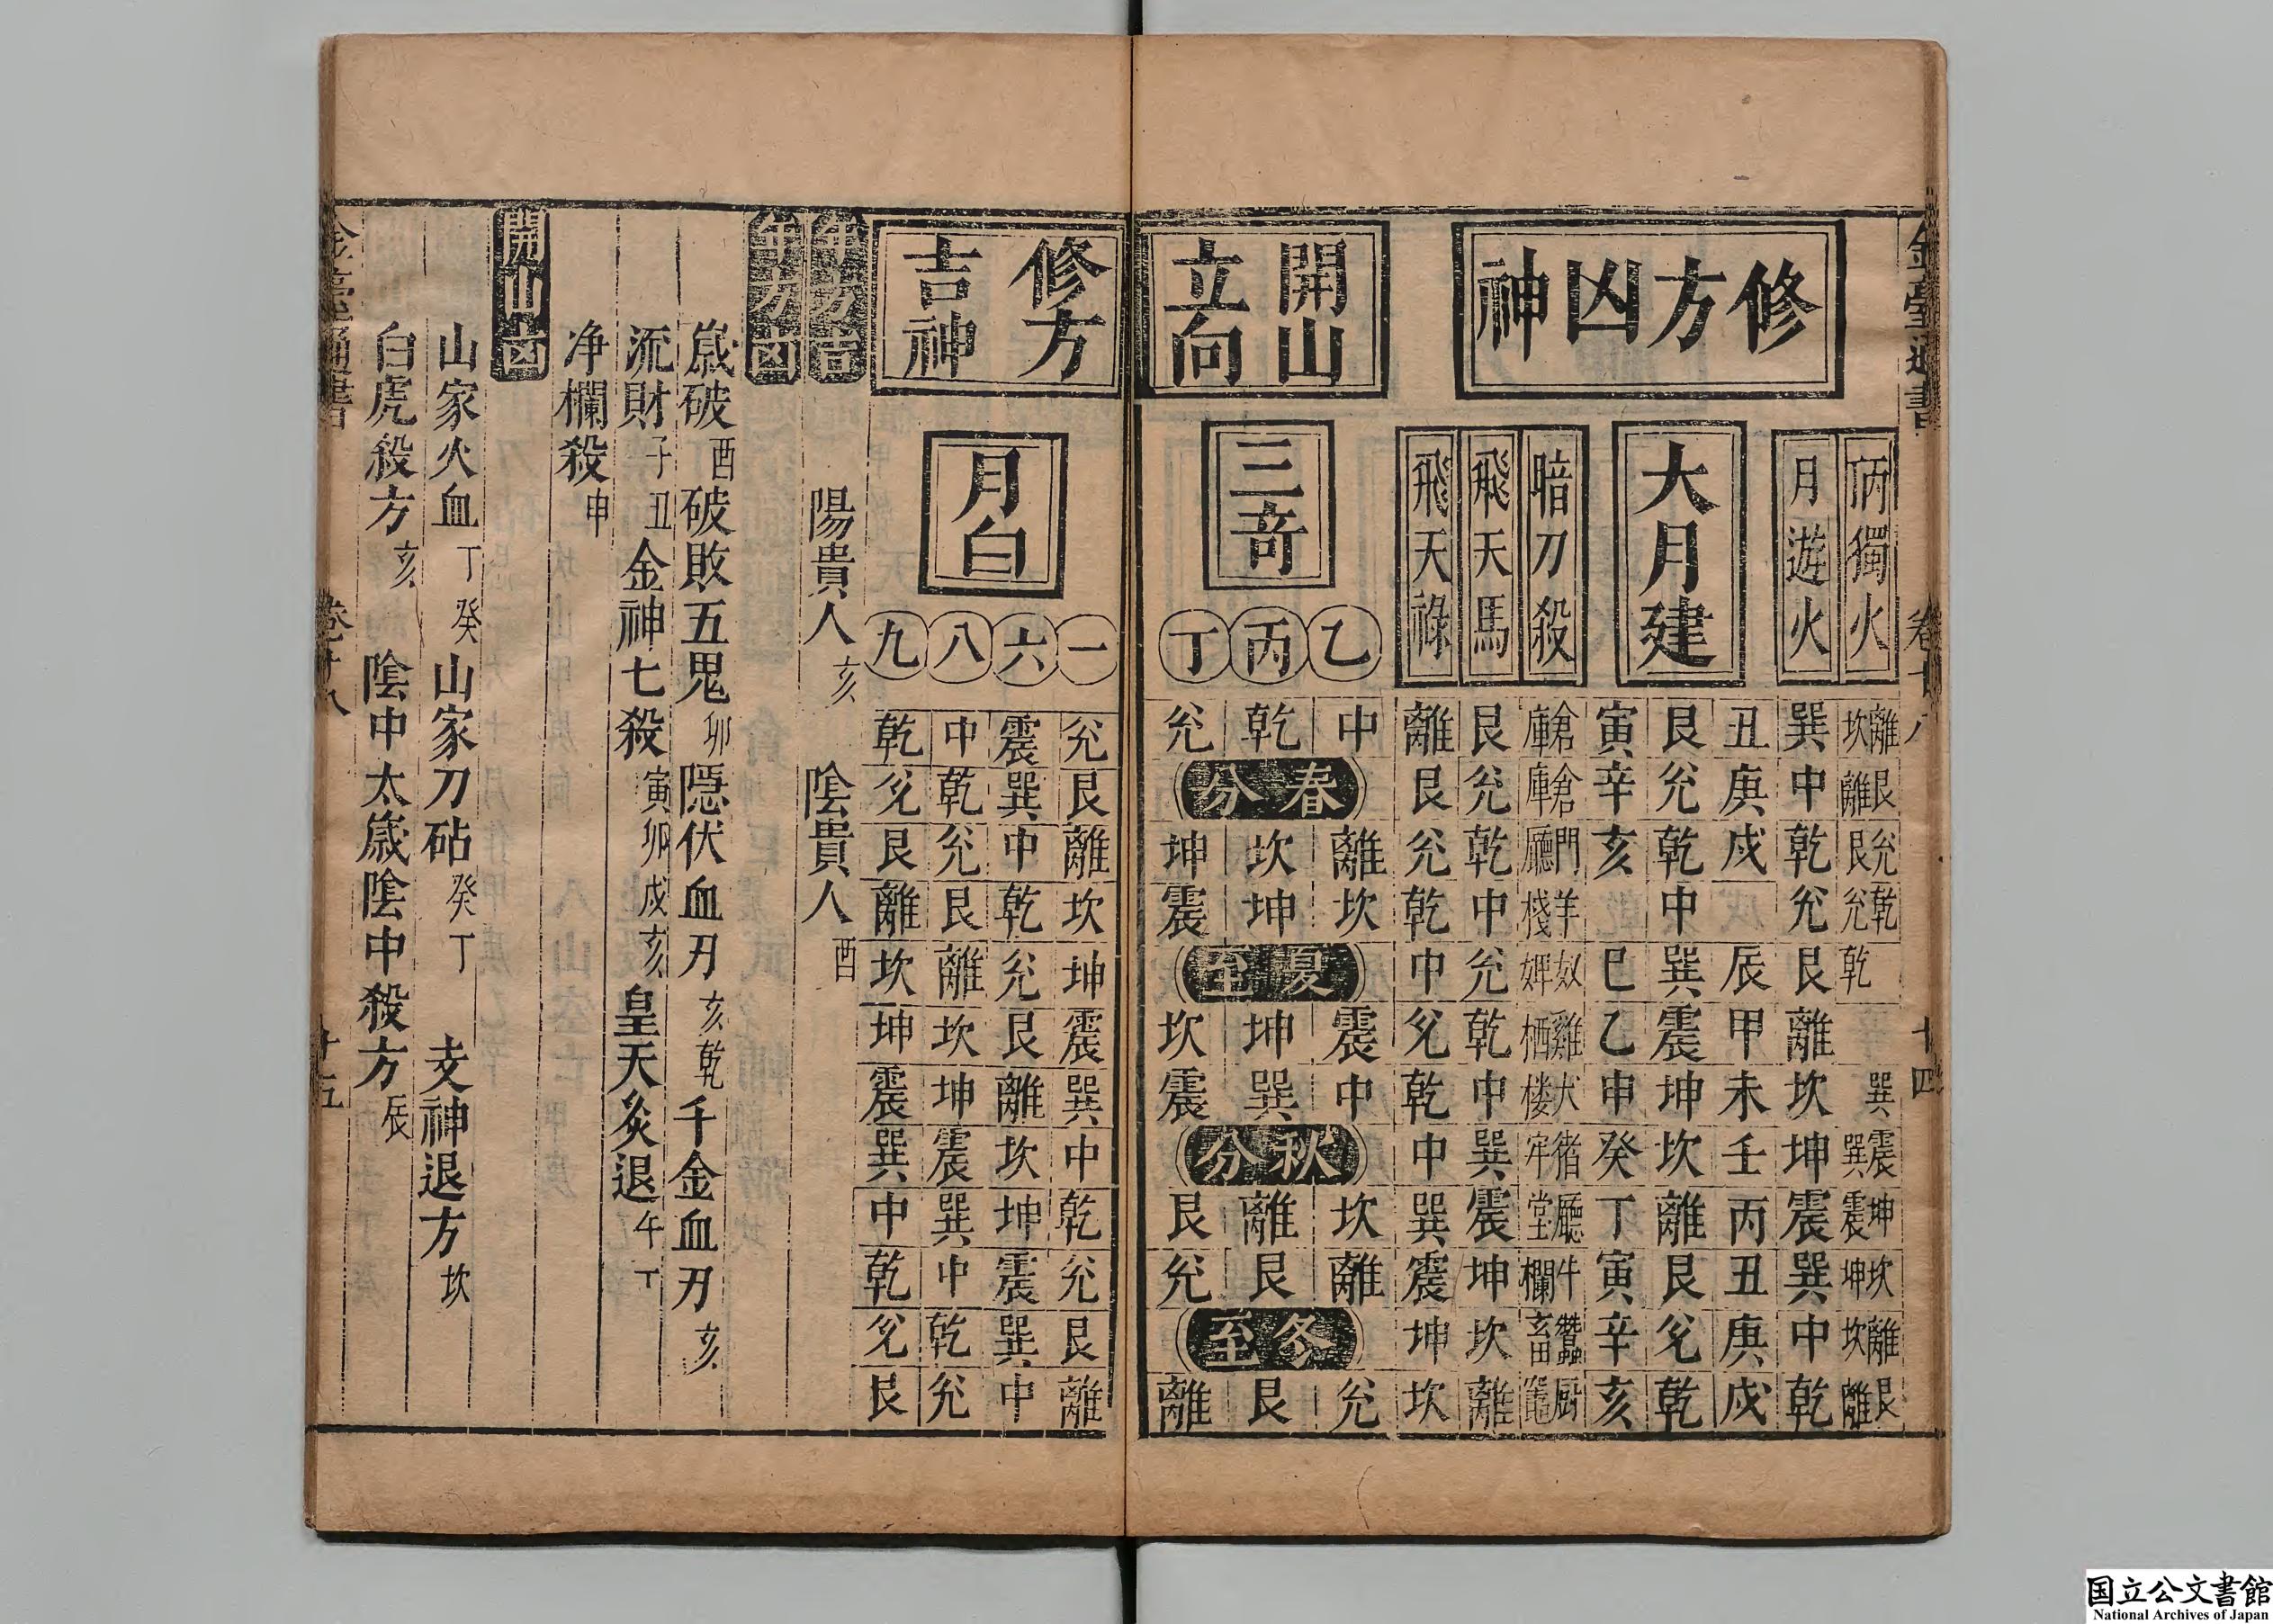 金臺通書 卷廿八 十四
修方凶神
丙獨火 離坎 艮離 兌艮 乾兌 乾 巽 震巽 坤震 坎坤 離坎 艮離
月遊火 巽 中 乾 兌 艮 離 坎 坤 震 巽 中 乾
大月建
丑 庚 戌 辰 甲 未 壬 丙 丑 庚 戌
艮 兌 乾 中 巽 震 坤 坎 離 艮 兌 乾
寅 辛 亥 巳 乙 申 癸 丁 寅 辛 亥
暗刀殺 倉庫 倉庫 門廳 羊棧 奴婢 雞栖 犬楼 猪牢 廳堂 牛欄 蠶畜 厨竈
飛天馬 艮 兌 乾 中 兌 乾 中 巽 震 坤 坎 離
飛天祿 離 艮 兌 乾 中 兌 乾 中 巽 震 坤 坎
開山立向
三奇
乙 中 離 坎 震 中 坎 離 兌
丙 乾 坎 坤 坤 巽 離 艮 艮
丁 兌 坤 震 坎 震 艮 兌 離
春分
夏至
秋分
冬至
修方吉神
月白
一 兌 艮 離 坎 坤 震 巽 中 乾 兌 艮 離
六 震 巽 中 乾 兌 艮 離 坎 坤 震 巽 中
八 中 乾 兌 艮 離 坎 坤 震 巽 中 乾 兌
九 乾 兌 艮 離 坎 坤 震 巽 中 乾 兌 艮
方吉 陽貴人 亥 陰貴人 酉
方凶
歲破 酉 破敗五鬼 卯 隱伏血刃 亥乾 千金血刃 亥
流財 子丑 金神七殺 寅卯戌亥 皇天炙退 午丁
净欄殺 申
開山凶
山家火血 丁癸 山家刀砧 癸丁 支神退方 坎
白虎殺方 亥 陰中太歲陰中殺方 辰
金臺通書 卷廿八 十五
国立公文書館
National Archives of Japan